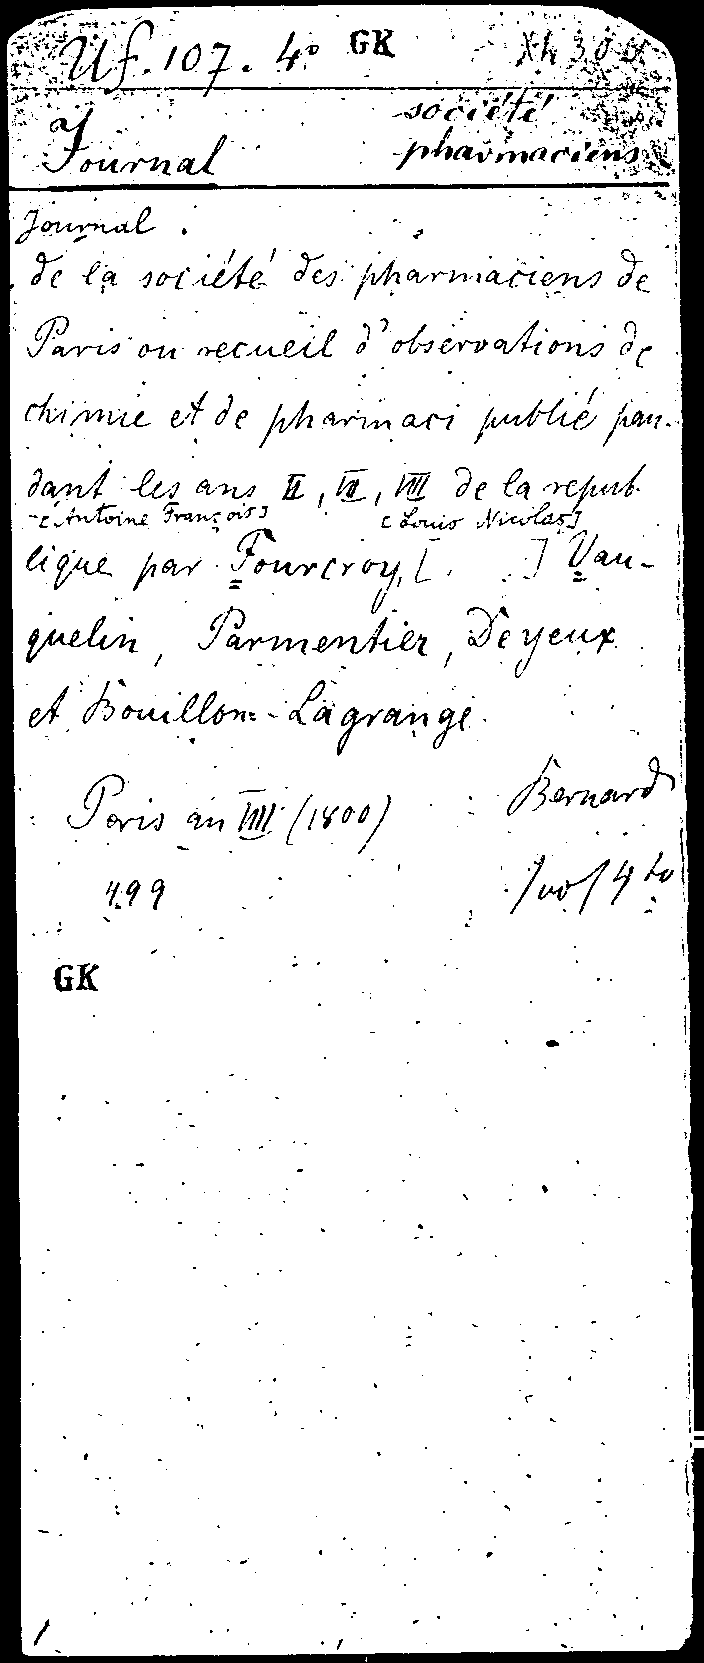 Uf. 107. 4° GK Xh 300
a)
Journal société
pharmaciens
Journal.
de la société des pharmaciens de
Paris ou recueil d'observations de
chimie et de pharmaci publié pan-
dant les ans II, VII, VIII de la repub-
[Antoine François] [Louis Nicolas]
lique par Fourcroy, [ ] Vau-
quelin, Parmentier, Deyeux
et Bouillon-Lagrange.
Paris an VIII (1800) Bernard
499 4to
GK